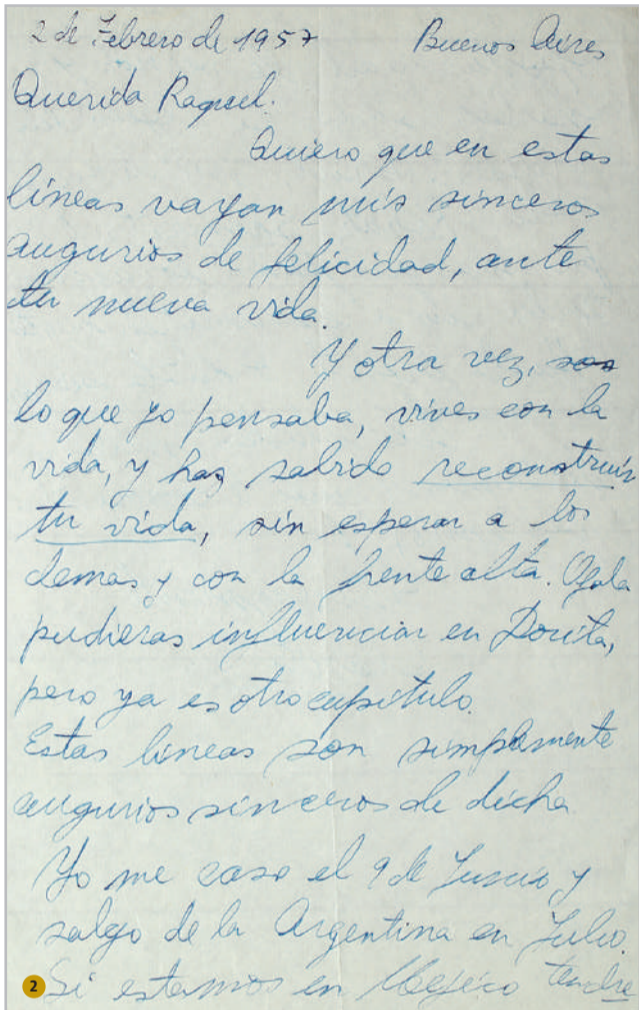 2 de Febrero de 1957 Buenos Aires
Querida Raquel.
Quiero que en estas
líneas vayan mis sinceros
augurios de felicidad, ante
tu nueva vida.
Y otra vez,
lo que yo pensaba, vives con la
vida, y haz sabido reconstruir
tu vida, sin esperar a los
demas y con la frente alta. Ojala
pudieras influenciar en Dorita,
pero ya es otro capitulo.
Estas lineas son simplemente
augurios sinceros de dicha
Yo me caso el 9 de Junio y
salgo de la Argentina en Julio.
2 Si estamos en Mejico tendre